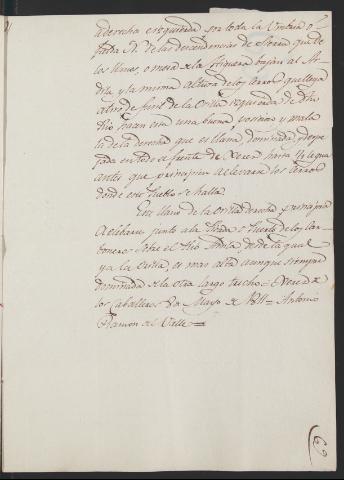 a derecha e izquierda por toda la Umbria o
falda N. de las descendencias de Sierra que de
los llinos, o mora de la Higuera bajan al Ar-
dila y la misma altura de los cerros que llega
al rio de fuente de la Orilla izquierda de dho
Rio hacen esta una buena posicion y mala
la de la derecha que es llana dominada, y despe-
jada en todo el frente de Xerez hasta ½ legua
antes que principien a elevarse los cerros
donde este Pueblo se halla.
Este llano de la orilla derecha principia
a elevarse junto a la y Puerto de los Car-
boneros sobre el Rio Ardila desde la qual
ya la orilla es mas alta aunque siempre
dominada de la otra largo trecho = Xerez de
los Caballeros 8 de Mayo de 1811 = Antonio
Ramon del Valle =